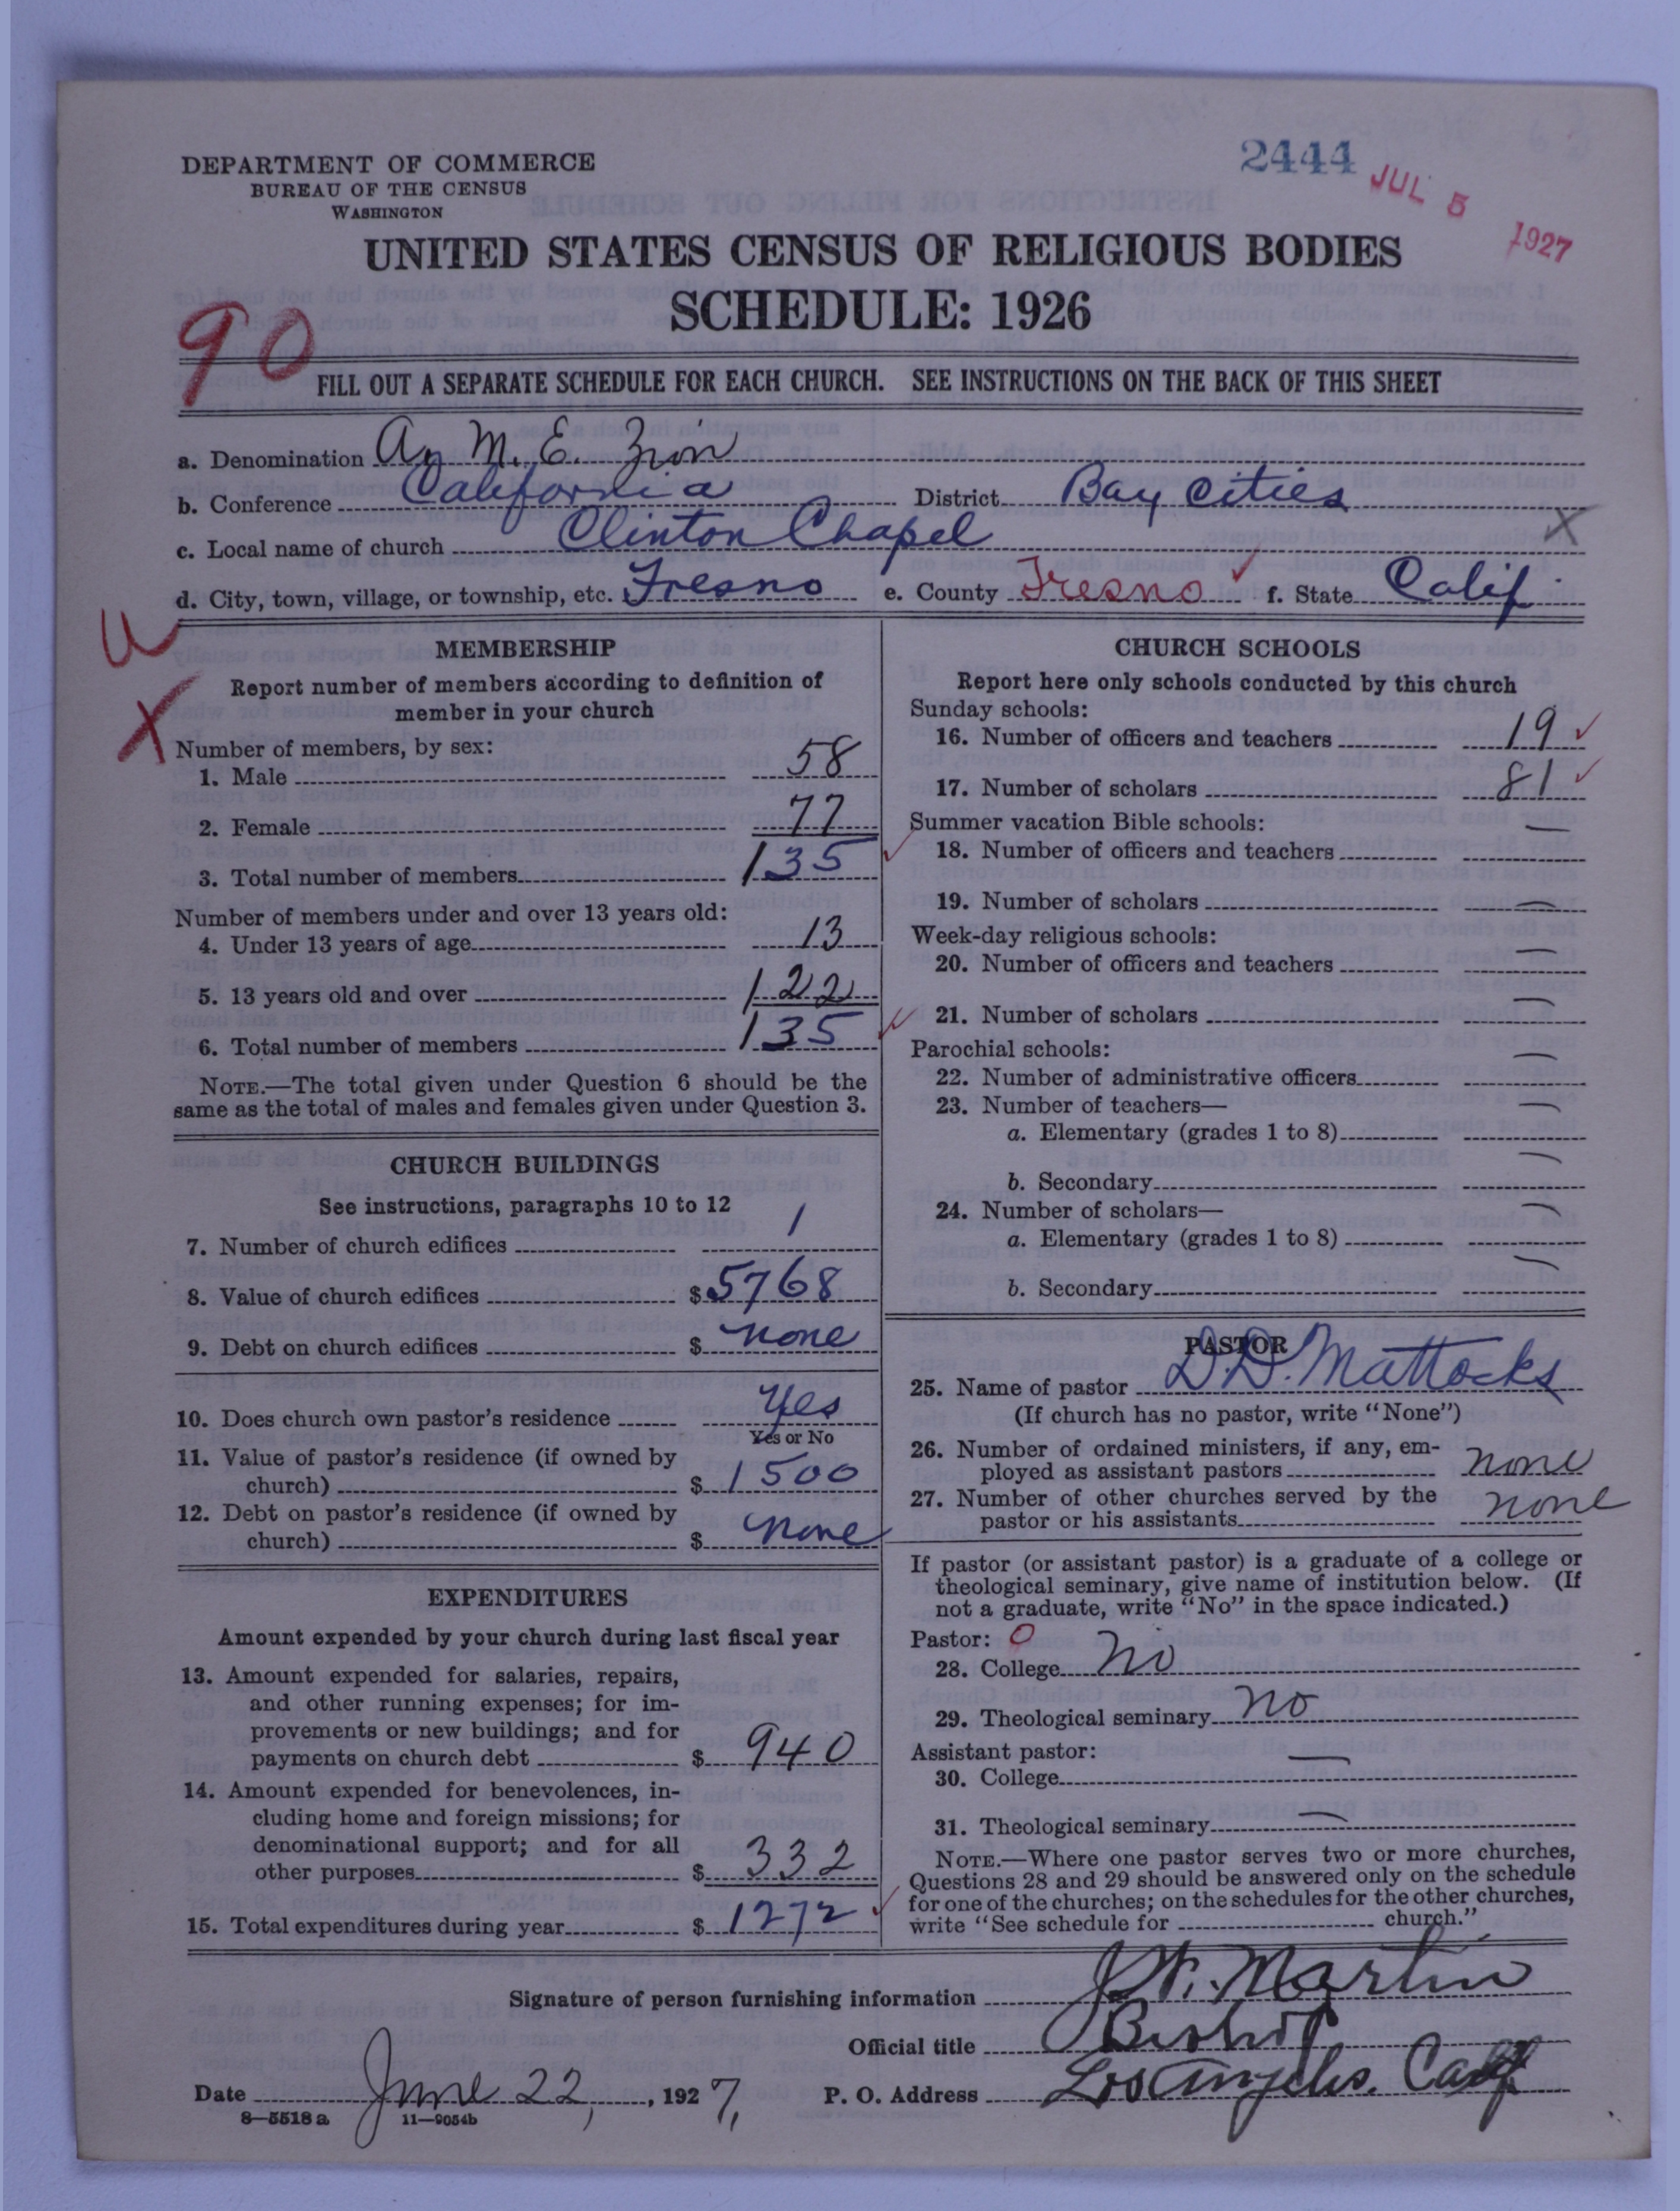 2444
JUL 5 1927
DEPARTMENT OF COMMERCE
BUREAU OF THE CENSUS
WASHINGTON
UNITED STATES CENSUS OF RELIGIOUS BODIES
SCHEDULE: 1926
90
FILL OUT A SEPARATE SCHEDULE FOR EACH CHURCH. SEE INSTRUCTIONS ON THE BACK OF THIS SHEET
a. Denomination A. M. E. Zion
b. Conference California District Bay Cities
c. Local name of church Clinton Chapel X
d. City, town, village, or township, etc. Fresno e. County Fresno ✓ f. State Calif
U
X
MEMBERSHIP
Report number of members according to definition of
member in your church
Number of members, by sex:
1. Male 58
2. Female 77
3. Total number of members 135 ✓
Number of members under and over 13 years old:
4. Under 13 years of age 13
5. 13 years old and over 122
6. Total number of members 135 ✓
NOTE.—The total given under Question 6 should be the
same as the total of males and females given under Question 3.
CHURCH BUILDINGS
See instructions, paragraphs 10 to 12
7. Number of church edifices 1
8. Value of church edifices $ 5768
9. Debt on church edifices $ none
10. Does church own pastor's residence Yes
Yes or No
11. Value of pastor's residence (if owned by
church) $ 1500
12. Debt on pastor's residence (if owned by
church) $ none
EXPENDITURES
Amount expended by your church during last fiscal year
13. Amount expended for salaries, repairs,
and other running expenses; for im-
provements or new buildings; and for
payments on church debt $ 940
14. Amount expended for benevolences, in-
cluding home and foreign missions; for
denominational support; and for all
other purposes $ 332
15. Total expenditures during year $ 1272 ✓
CHURCH SCHOOLS
Report here only schools conducted by this church
Sunday schools:
16. Number of officers and teachers 19 ✓
17. Number of scholars 81 ✓
Summer vacation Bible schools:
18. Number of officers and teachers —
19. Number of scholars —
Week-day religious schools:
20. Number of officers and teachers —
21. Number of scholars —
Parochial schools:
22. Number of administrative officers —
23. Number of teachers—
a. Elementary (grades 1 to 8) —
b. Secondary —
24. Number of scholars—
a. Elementary (grades 1 to 8) —
b. Secondary —
PASTOR
25. Name of pastor D. D. Mattocks
(If church has no pastor, write "None")
26. Number of ordained ministers, if any, em-
ployed as assistant pastors none
27. Number of other churches served by the
pastor or his assistants none
If pastor (or assistant pastor) is a graduate of a college or
theological seminary, give name of institution below. (If
not a graduate, write "No" in the space indicated.)
Pastor: 0
28. College No
29. Theological seminary no
Assistant pastor:
30. College —
31. Theological seminary —
NOTE.—Where one pastor serves two or more churches,
Questions 28 and 29 should be answered only on the schedule
for one of the churches; on the schedules for the other churches,
write "See schedule for church."
Signature of person furnishing information J. W. Martin
Official title Bishop
Date June 22, 1927, P. O. Address Los Angeles. Calif
8—5518 a 11—9054b